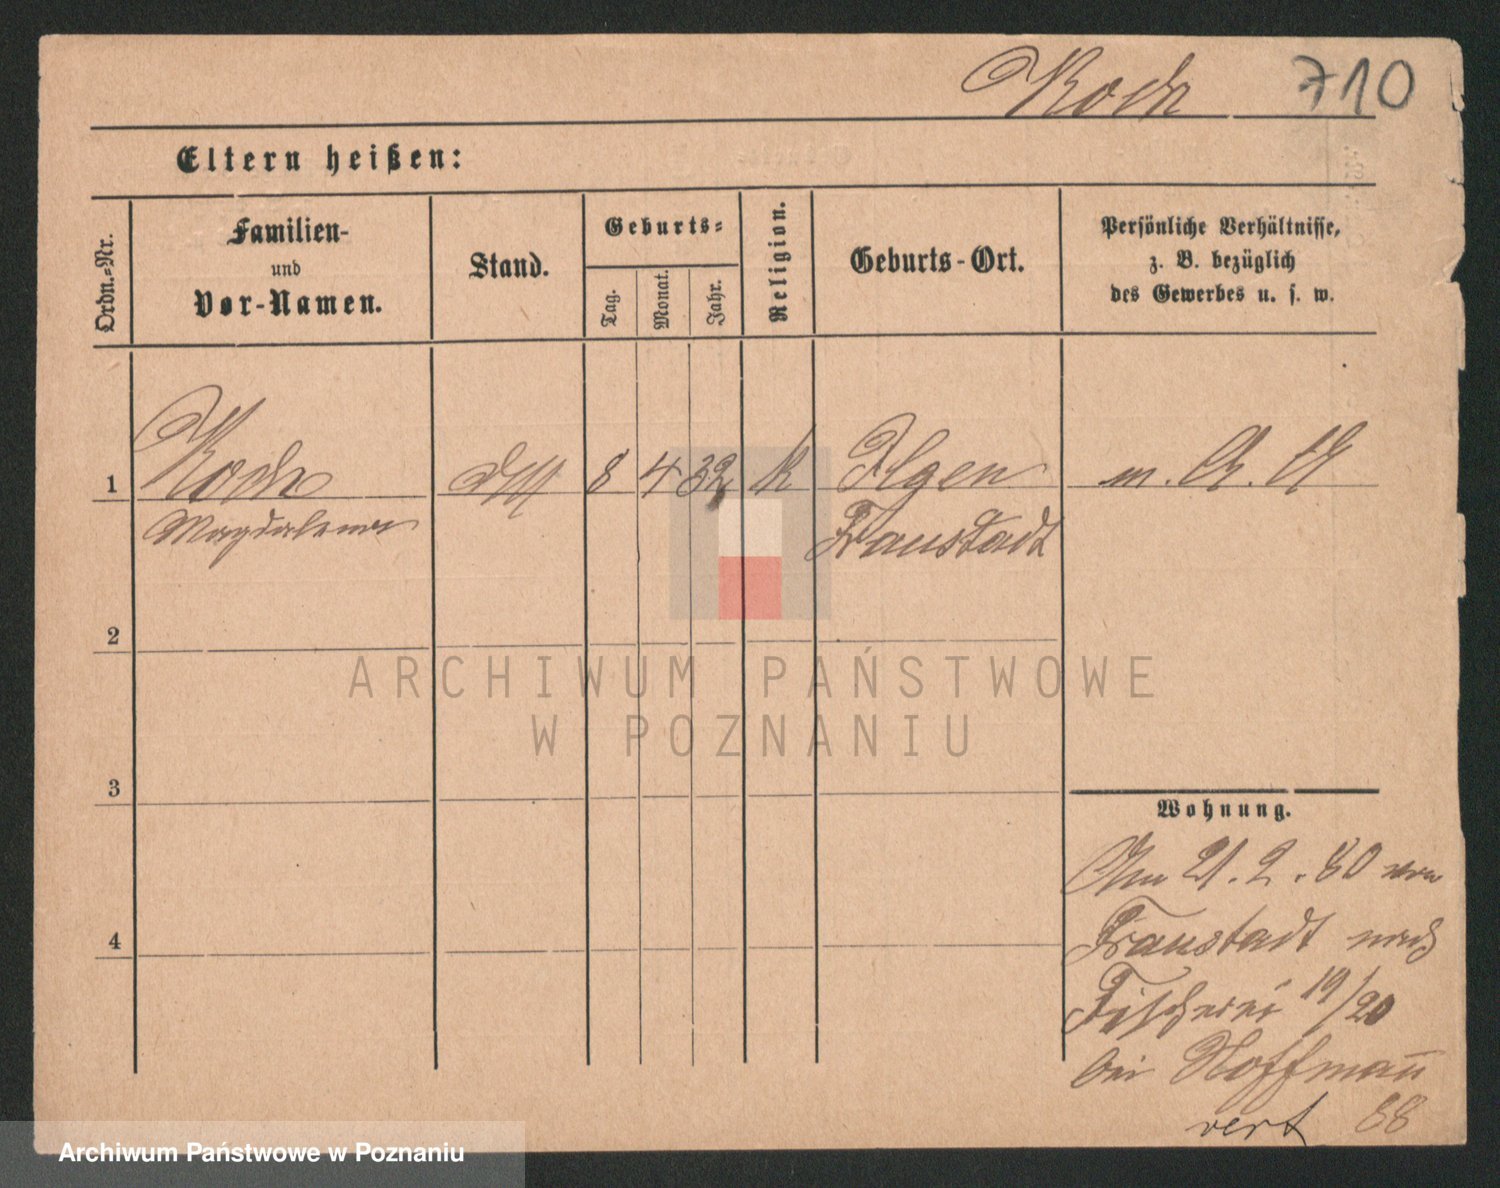 Koch 710
Eltern heißen:
Ordn.-Nr.
Familien-
und
Vor-Namen.
Stand.
Geburts-
Tag.
Monat.
Jahr.
Religion.
Geburts-Ort.
Persönliche Verhältnisse,
z. B. bezüglich
des Gewerbes u. s. w.
1 Koch 8 4 32 k Ilgen
Magdalena Fraustadt
2
3
4
Wohnung.
Am 21.2.80 von
Fraustadt nach
Fischerei 19/20
bei Hoffmann
verz 88
ARCHIWUM PAŃSTWOWE
W POZNANIU
Archiwum Państwowe w Poznaniu